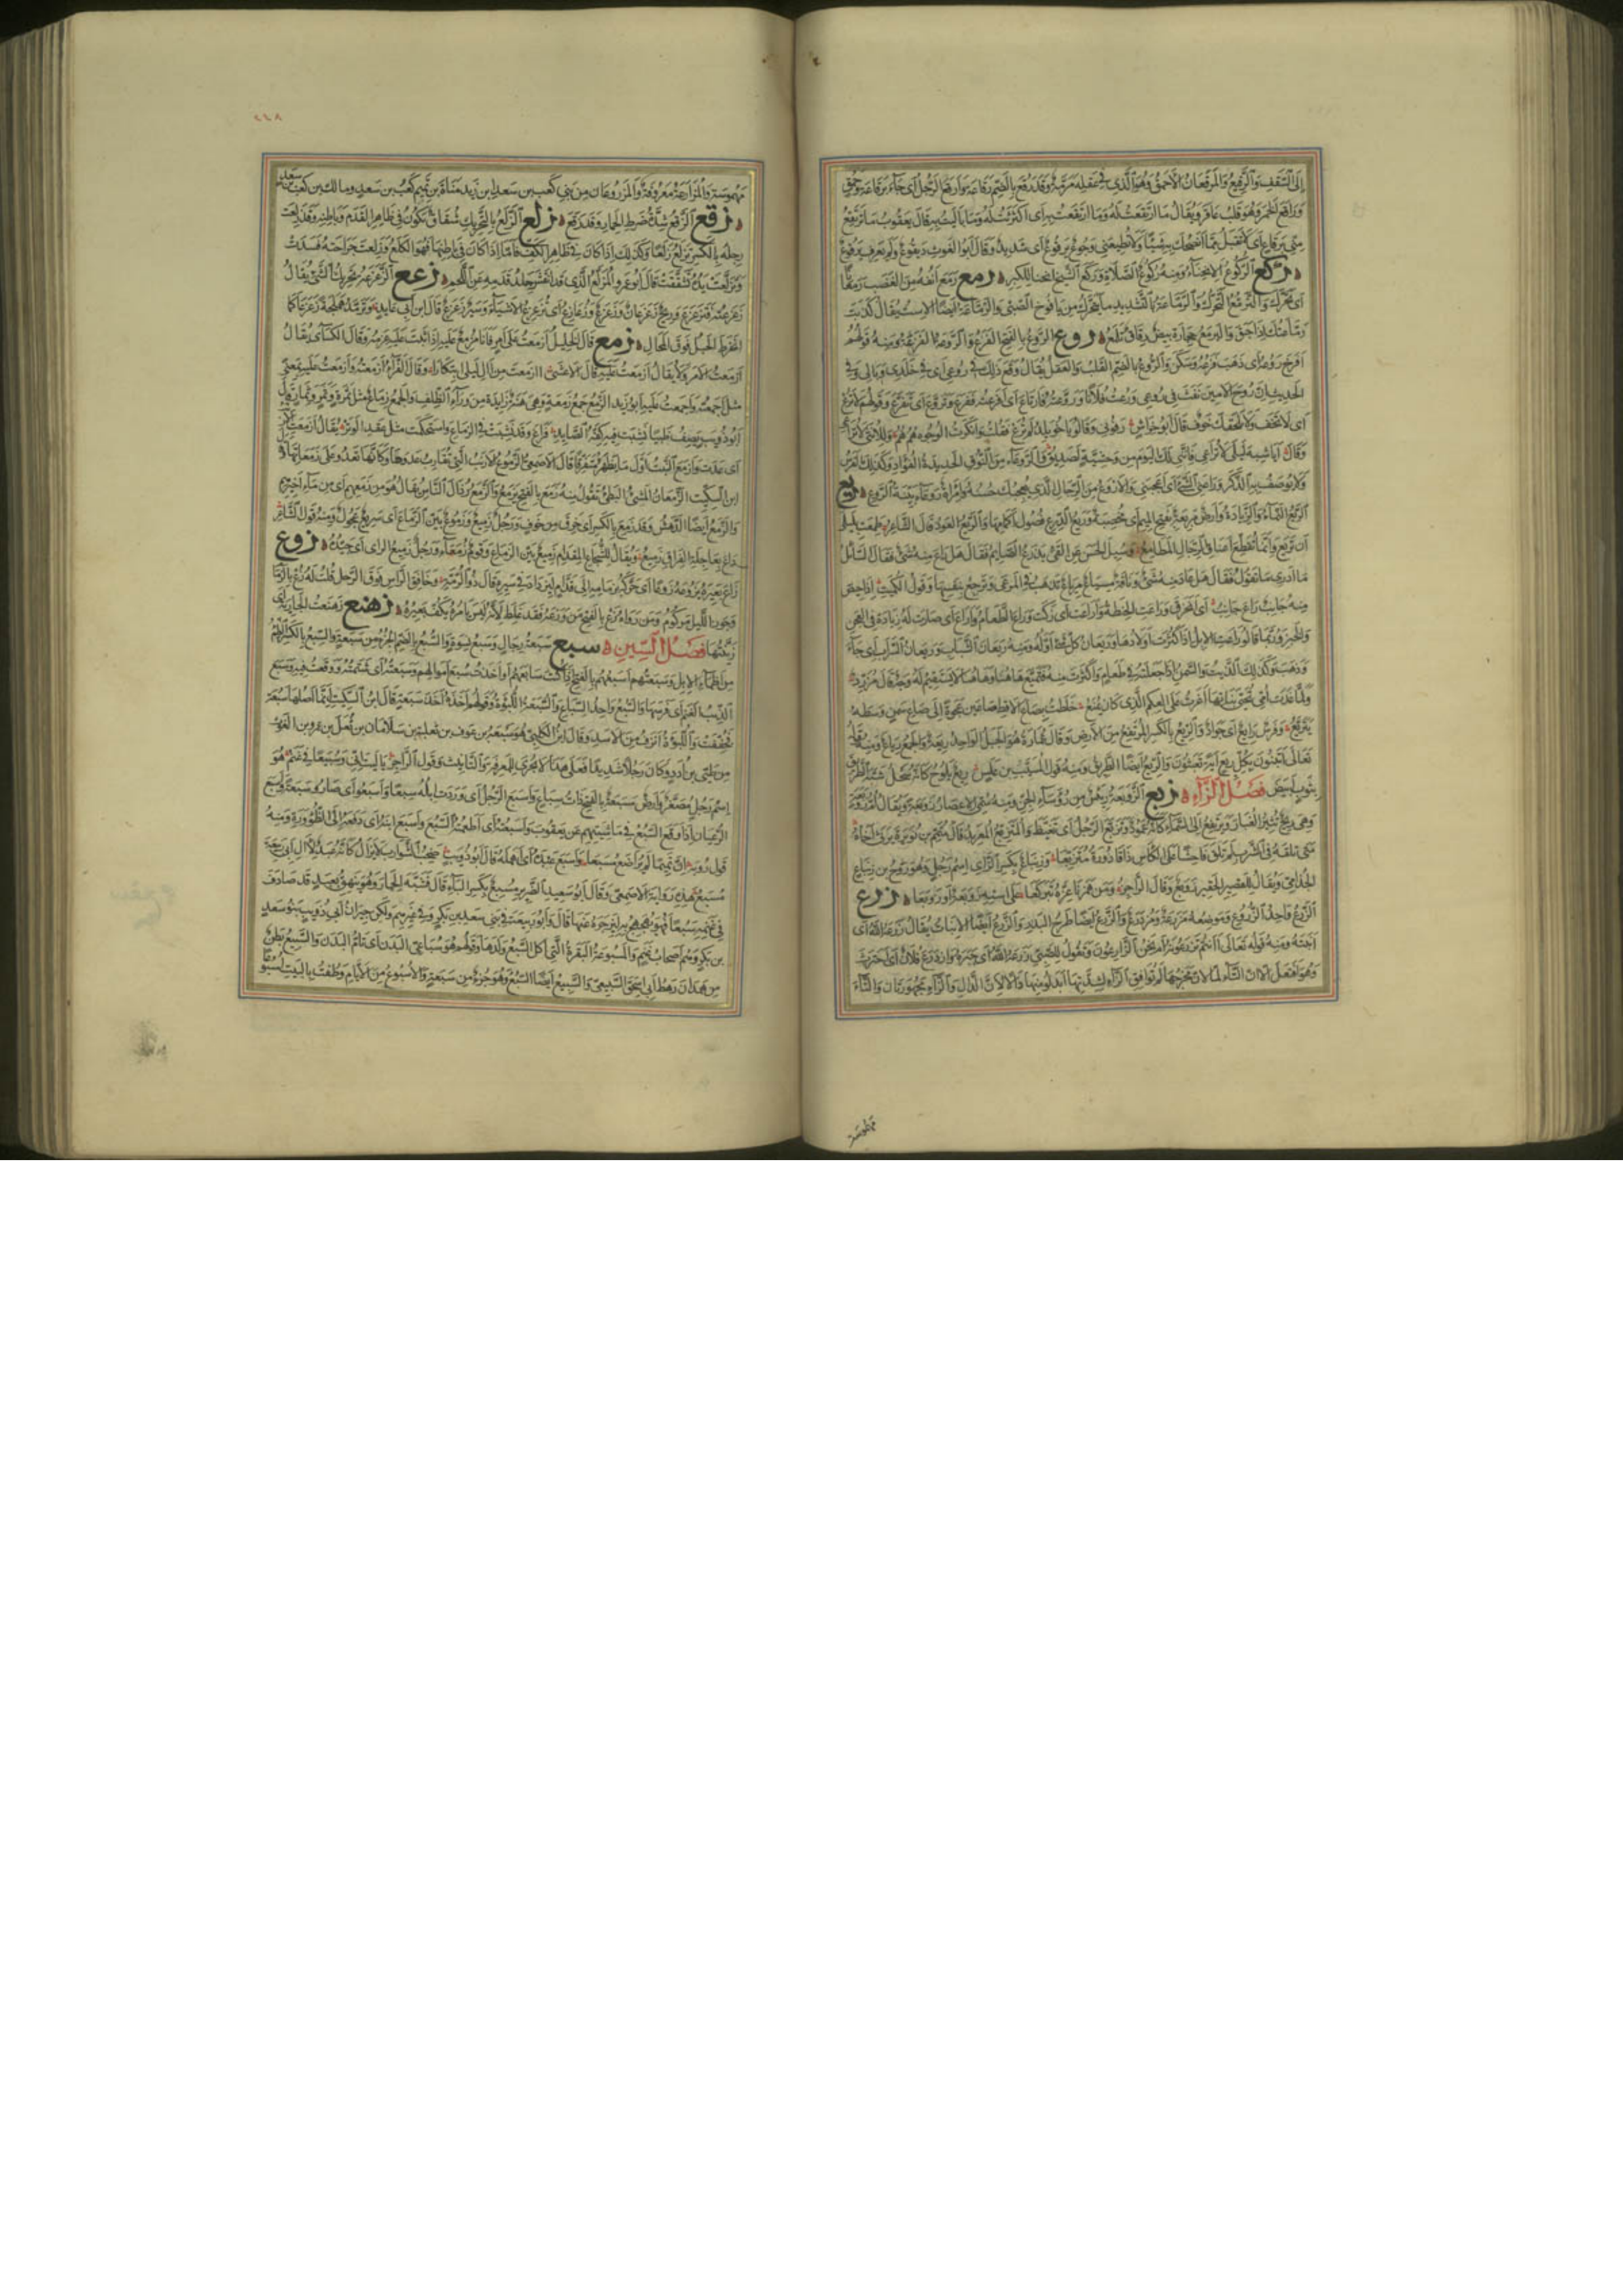 إلى السقف والرقيع والمرقعان الأحمق وهو الذي في عقله مرمة وقد رقع بالضم رقاعة وأرقع الرجل أي جاء برقاعة وحمق
وراقع الخمر وهو قلب عاقر ويقال ما ارتقعت له وما ارتقعت به أي اكترثت له وما باليت به قال يعقوب ما ترتقع
مني برقاع أي لا تقبل مما أنصحك به شيئا ولا تطيعني وجوع يرقوع أي شديد وقال أبو الغوث ديقوع ولم يعرف يرقوع
ركع الركوع الانحناء ومنه ركوع الصلاة وركع الشيخ انحنا للكبر رمع رمع أنفه من الغضب رمعا
أي تحرك والترمع التحرك والرماعة بالتشديد ما يتحرك من يافوخ الصبي والرماعة أيضا الاست يقال كذبت
رماعتك إذا حبق واليرمع حجارة بيض رقاق تلمع روع الروع بالفتح الفزع والروعة الفزعة ومنه قولهم
أفرخ روعه أي ذهب فزعه وسكن والروع بالضم القلب والعقل يقال وقع ذلك في روعي أي في خلدي وبالي وفي
الحديث إن روح الأمين نفث في روعي ورعت فلانا وروعته فارتاع أي أفزعته ففزع وتروع أي تفزع وقولهم لا ترع
أي لا تخف ولا يلحقك خوف قال أبو خراش رفوني وقالوا يا خويلد لم ترع فقلت وأنكرت الوجوه هم هم وللأنثى لا تراعي
وقال أيا شبه ليلى لا تراعي فإنني لك اليوم من وحشية لصديق والروعاء من النوق الحديدة الفؤاد وكذلك الفرس
ولا يوصف به الذكر وراعني الشيء أي أعجبني والأروع من الرجال الذي يعجبك حسنه وامرأة روعاء بينة الروع ريع
الريع النماء والزيادة وأرض مريعة بفتح الميم أي مخصبة وريع الدرع فضول أكمامها والريع العود قال الشاعر طمعت بليلى
أن تريع وإنما تقطع أعناق الرجال المطامع وسئل الحسن عن القيء يذرع الصائم فقال هل راع منه شيء فقال السائل
ما أدري ما تقول فقال هل عاد منه شيء وناقة مسياع مرياع تذهب في المرعى وترجع بنفسها وقول الكميت إذا حيص
منه جانب راع جانب أي انخرق وراعت الحنطة وأراعت أي زكت وراع الطعام وأراع أي صارت له زيادة في العجن
والخبز وربما قالوا أراعت الإبل إذا كثرت أولادها وريعان كل شيء أوله ومنه ريعان الشباب وريعان السراب أي جاء
وذهب وكذلك الزيت والسمن إذا جعلته في طعام وأكثرت منه فتميع هاهنا وهاهنا لا يستقيم له وجه قال مزرد
ولما غدت أمي تحيي بناتها أغرت على العكم الذي كان يمنع خلطت بصاع الأقط صاعين عجوة إلى صاع سمن وسطه
يتريع وفرس رائع أي جواد والريع بالكسر المرتفع من الأرض وقال عمارة هو الجبل الواحد ريعة والجمع رياع ومنه قوله
تعالى أتبنون بكل ريع آية تعبثون والريع أيضا الطريق ومنه قول المسيب بن علس ريع يلوح كأنه سحل شبه الطريق
بثوب أبيض فصل الزاء زبع الزوبعة رئيس من رؤساء الجن ومنه سمي الإعصار زوبعة ويقال أم زوبعة
وهي ريح تثير الغبار ويرتفع إلى السماء كأنه عمود وتزبع الرجل أي تغيظ والمتزبع المعربد قال متمم بن نويرة يرثي أخاه
متى تلقه في الشرب لم تلق فاحشا على الكأس ذا قاذورة متزبعا وزنباع بكسر الزاي اسم رجل وهو روح بن زنباع
الجذامي ويقال للقصير الحقير زوبع وقال الراجز ومن همزنا عزه تبركعا على استه زوبعة أو زوبعا زرع
الزرع واحد الزروع وموضعه مزرعة ومزدرع والزرع أيضا طرح البذر والزرع أيضا الإنبات يقال زرعه الله أي
أنبته ومنه قوله تعالى أأنتم تزرعونه أم نحن الزارعون وتقول للصبي زرعه الله أي جبره وازدرع فلان أي احترث
وهو افتعل إلا أن التاء لما لان مخرجها لم توافق الزاء لشدتها أبدلوا منها دالا لأن الدال والزاء مجهورتان والتاء
مهموسة
٢٤٨
مهموسة والمزارعة معروفة والمزروعان من بني كعب بن سعد ابن زيد مناة بن تميم كعب بن سعد ومالك بن كعب بن سعد
زقع الزقع شدة ضرط الحمار وقد زقع زلع الزلع بالتحريك شقاق يكون في ظاهر القدم وباطنه وقد زلعت
رجله بالكسر تزلع زلعا وكذلك إذا كان في ظاهر الكف فأما إذا كان في باطنها فهو الكلع وزلعت جراحته فسدت
وتزلعت يده تشققت قال أبو عمرو المزلع الذي قد انقشر جلد قدمه عن اللحم زعع الزعزعة تحريك الشيء يقال
زعزعته فتزعزع وريح زعزعان وزعزع وزعازع أي تزعزع الأشياء وسير زعزع قال ابن أبي عايذ وترمد هملجة زعزعا كما
انخرط الحبل فوق المحال زمع قال الخليل أزمعت على أمر فأنا مزمع عليه إذا ثبت عليه عزمه وقال الكسائي يقال
أزمعت الأمر ولا يقال أزمعت عليه قال الأعشى أأزمعت من آل ليلى ابتكارا وقال الفراء أزمعته وأزمعت عليه بمعنى
مثل أجمعته وأجمعت عليه أبو زيد الزمع جمع زمعة وهي هنة زايدة من وراء الظلف والجمع زماع مثل ثمرة وثمر وثمار قال
أبو ذؤيب يصف ظبيا نشبت فيه كفة الصايد فراغ وقد نشبت في الزماع واستحكمت مثل عقد الوتر يقال أزمعت
أي عدت وأزمع النبت أول ما يظهر متفرقا قال الأصمعي الزموع الأرنب التي تقارب عدوها وكأنها تعدو على زمعاتها
ابن السكيت الزمعان المشي البطيء تقول منه زمع بالفتح يزمع والزمع رذال الناس يقال هو من زمعهم أي من مآخيرهم
والزمع أيضا الدهش وقد زمع بالكسر أي خرق من خوف ورجل زميع وزموع بين الزماع أي سريع عجول ومنه قول الشاعر
داع بعاجلة الفراق زميع ويقال للشجاع المقدم زميع بين الزماع وقوم زمعاء ورجل زميع الرأي أي جيده زوع
زاع بعيره يزوعه زوعا أي حركه بزمامه إلى قدام ليزداد في سيره قال ذو الرمة وخافق الرأس فوق الرحل قلت له زع بالزمام
وجوز الليل مركوم ومن رواه زع بالفتح من وزعه فقد غلط لأنه ليس يأمره بكف بعيره زهنع زهنعت الجارية أي
زينتها فصل السين سبع سبعة رجال وسبع نسوة والسبع بالضم الجزء من سبعة والسبع بالكسر الظمء
من أظماء الإبل وسبعتهم أسبعهم بالفتح إذا كنت سابعهم أو أخذت سبع أموالهم وسبعته أي شتمته ووقعت فيه وسبع
الذئب الغنم أي فرسها والسبع واحد السباع والسبعة اللبؤة وقولهم أخذه أخذ سبعة قال ابن السكيت إنما أصلها سبعة
فخففت واللبؤة أنزق من الأسد وقال ابن الكلبي هو سبعة بن عوف بن ثعلبة بن سلامان بن ثعل بن عمرو بن الغوث
من طيئ بن أدد وكان رجلا شديدا فعلى هذا لا يجري للمعرفة والتأنيث وقول الراجز يا ليت أني وسبيعا في غنم هو
اسم رجل مصغر وأرض مسبعة بالفتح ذات سباع وأسبع الرجل أي وردت إبله سبعا وأسبعوا أي صاروا سبعة وأسبع
الرعيان إذا وقع السبع في ماشيتهم عن يعقوب وأسبعته أي أطعمته السبع وأسبع ابنه أي دفعه إلى الظؤورة ومنه
قول رؤبة إن تميما لم يراضع مسبعا وأسبع عبده أي أهمله قال أبو ذؤيب صخب الشوارب لا يزال كأنه عبد لآل أبي ربيعة
مسبع هذه رواية الأصمعي وقال أبو سعيد الضرير مسبع بكسر الباء قال فشبه الحمار وهو ينهق بعبد قد صادف
في غنمه سبعا فهو يهجهج به ليزجره عنها قال وأبو ربيعة في بني سعد بن بكر وفي غيرهم ولكن جيران أبي ذؤيب بنو سعد
بن بكر وهم أصحاب غنم والمسبوعة البقرة التي أكل السبع ولدها وقولهم هو سباعي البدن أي تام البدن والسبيع بطن
من همدان رهط أبي إسحق السبيعي والسبيع أيضا السبع وهو جزء من سبعة والأسبوع من الأيام وطفت بالبيت أسبوعا